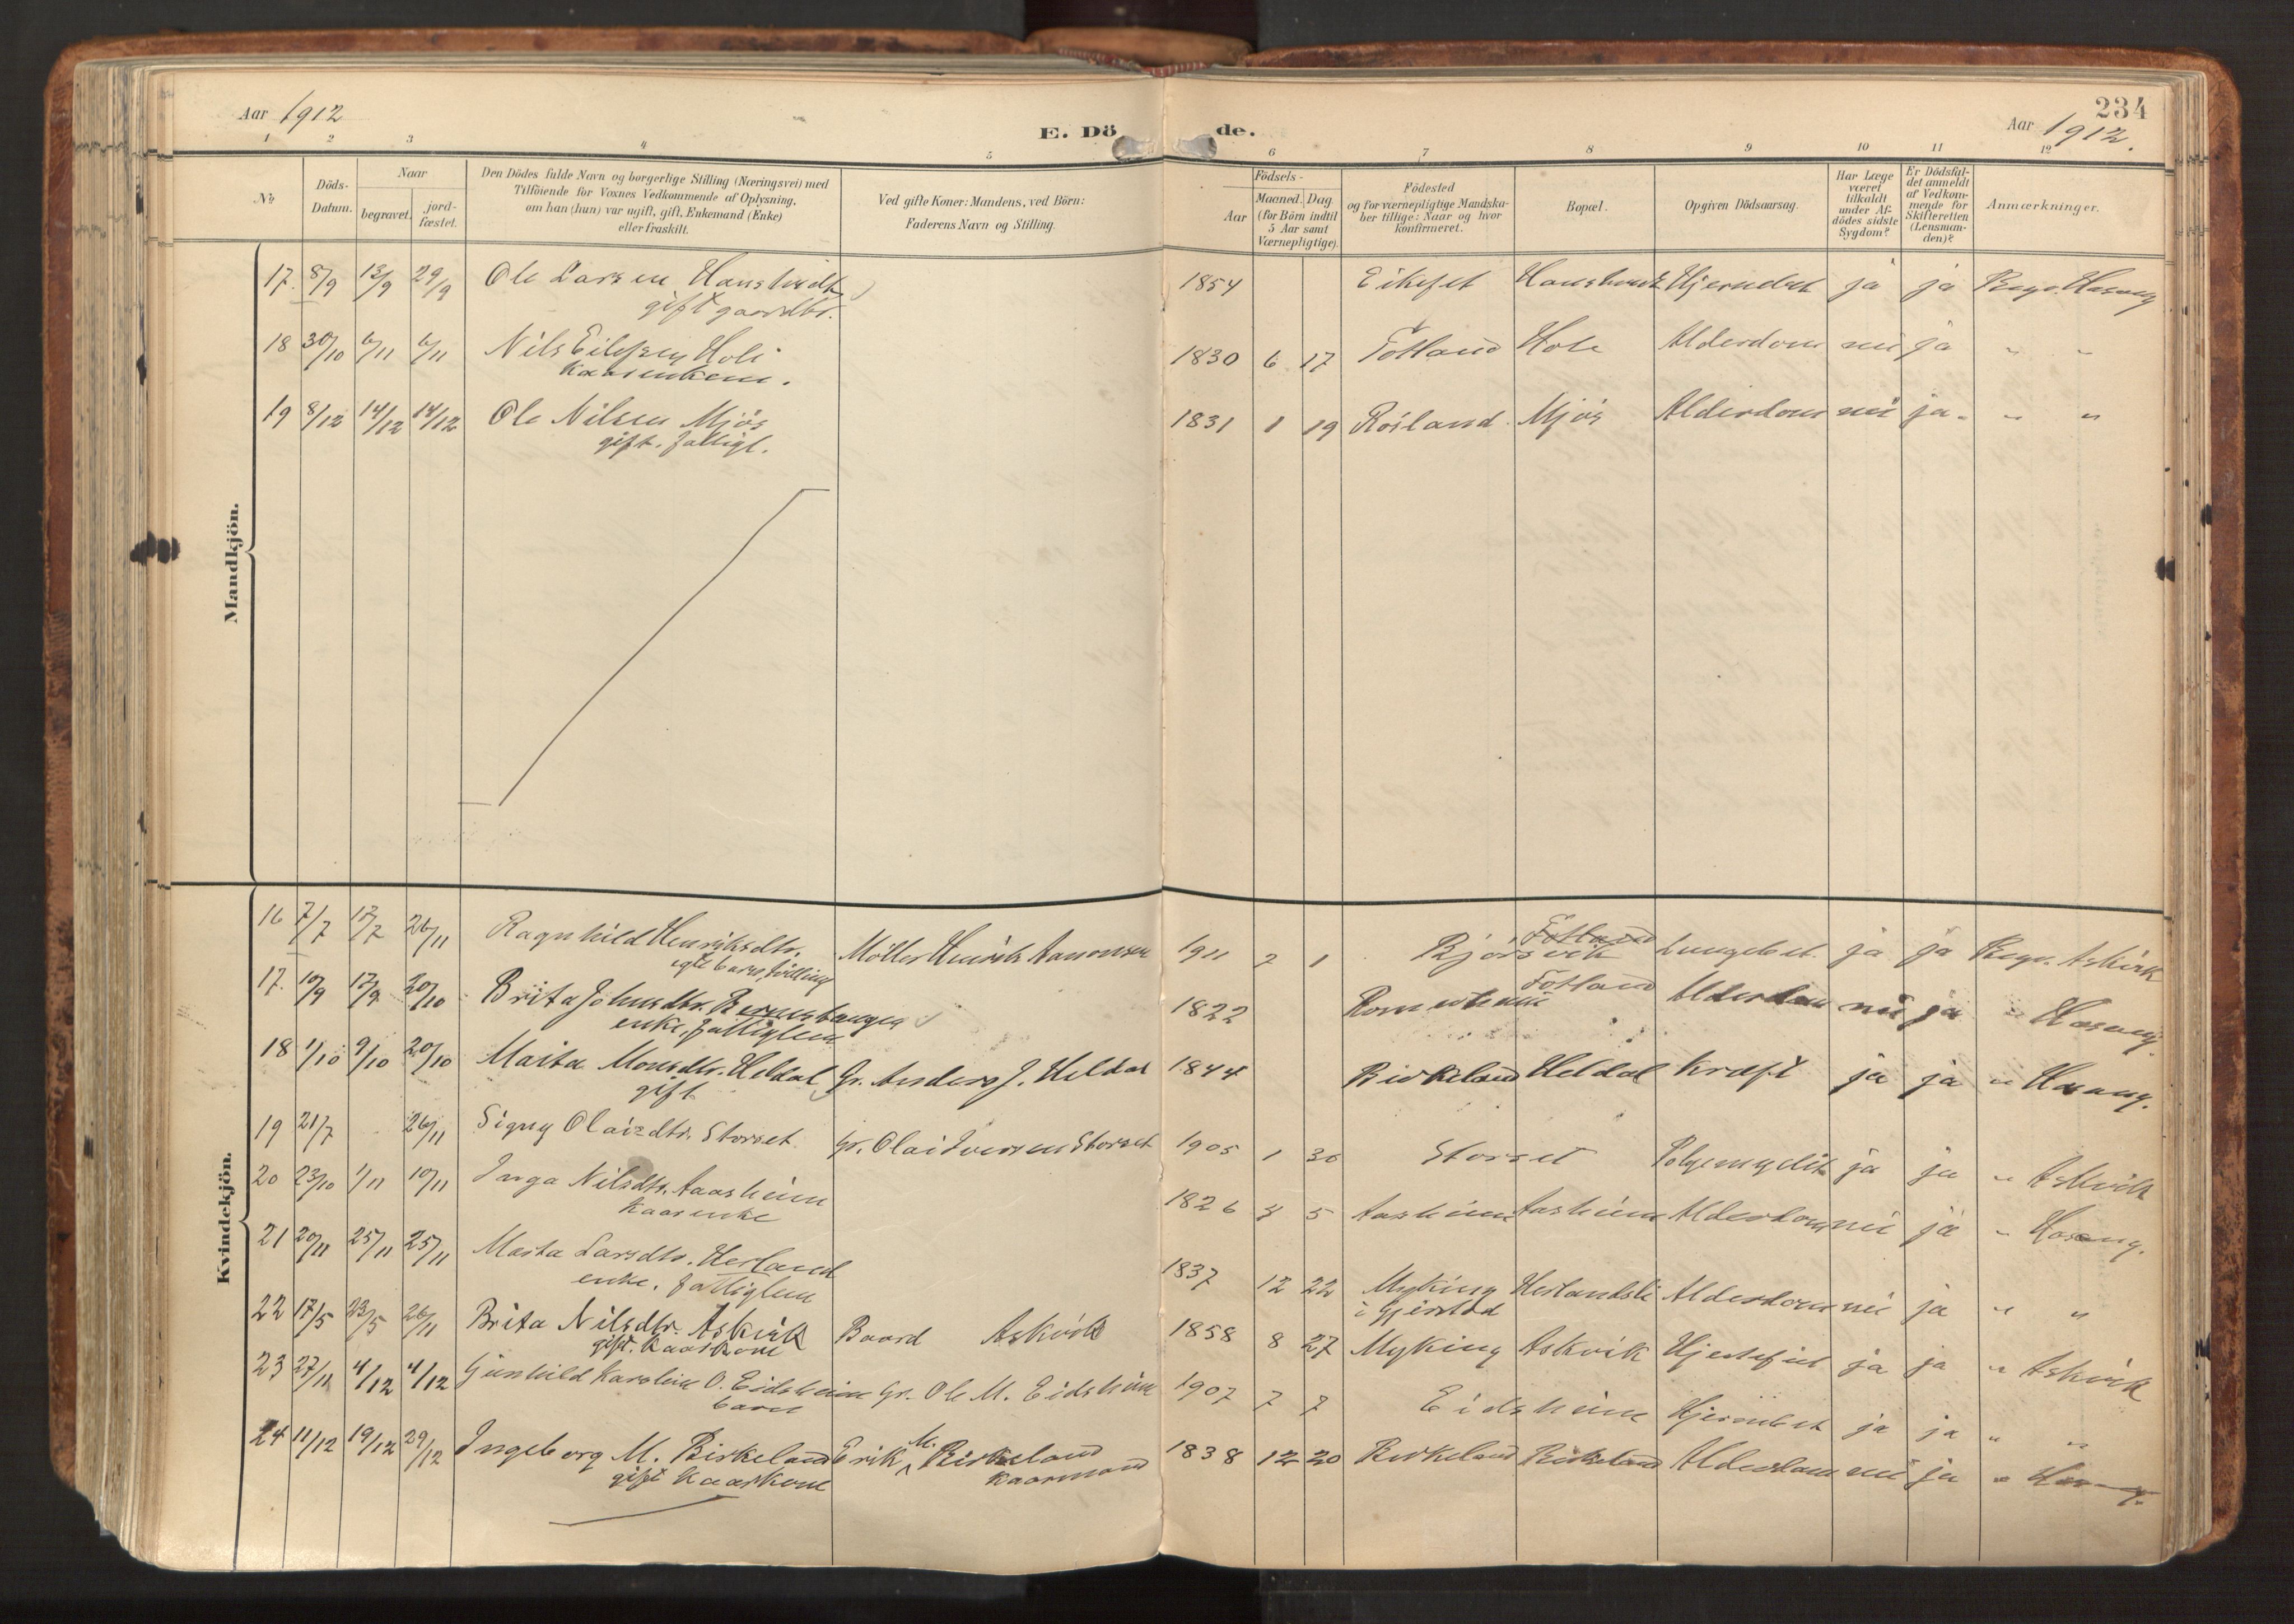 234
Aar 1912
E. Dö de.
Aar 1912.
1 2 3 4 5 6 7 8 9 10 11 12
No
Döds-
Datum.
Naar
begravet.
jord-
fæstet.
Den Dödes fulde Navn og borgerlige Stilling (Næringsvei) med
Tilföiende for Voxnes Vedkommende af Oplysning,
om han (hun) var ugift, gift, Enkemand (Enke)
eller fraskilt.
Ved gifte Koner: Mandens, ved Börn:
Faderens Navn og Stilling.
Födsels-
Aar
Maaned. Dag
(for Börn indtil
5 Aar samt
Værnepligtige).
Födested
og for værnepligtige Mandska-
ber tillige: Naar og hvor
konfirmeret.
Bopæl.
Opgiven Dödsaarsag.
Har Læge
været
tilkaldt
under Af-
dödes sidste
Sygdom?
Er Dödsfal-
det anmeldt
af Vedkom-
mende for
Skifteretten
(Lensman-
den)?
Anmærkninger.
Mandkjön.
17. 8/9 13/9 29/9 Ole Larsen 1854 Eikefet ja ja Hosang
gift gaardbr.
18 30/10 6/11 6/11 Nils Eilefsen Hole 1830 6 17 Totland Hole Alderdom nei ja " "
19 8/12 14/12 14/12 Ole Nilsen Mjös 1831 1 19 Rosland Mjös Alderdom nei ja " "
gift. fattigl.
Kvindekjön.
Totland
16 7/7 17/7 26/11 Ragnhild Henriksdtr. Möller Henrik Aamonsen 1911 2 1 Bjørsvik ja ja Askvik
egte barn, tvilling
Totland
17. 10/9 17/9 20/10 Brita Johnsdtr. 1822 Alderdom nei ja " Hosang.
enke, fattiglem
18 1/10 9/10 20/10 Marta Monsdtr. Heldal Gr. Anders J. Heldal 1844 Birkeland Heldal Kræft ja ja " Hosang.
gift
19 21/7 26/11 Signy Olaisdtr. Storset Gr. Olai Iversen Storset 1905 1 30 Storset ja ja " Askvik
20 23/10 1/11 10/11 Inga Nilsdtr. Aasheim 1826 4 5 Aasheim Aasheim Alderdom nei ja " Hosang.
Kaarenke
21 20/11 25/11 25/11 Marta Larsdtr. Herland 1837 12 22 Myking Herlandsli Alderdom nei ja " "
enke, fattiglem
i Gjerstad
22 17/5 23/5 26/11 Brita Nilsdtr. Askvik Baard Askvik 1858 8 27 Myking Askvik Hjertefeil ja ja " Askvik
gift. Kaarkone
23 27/11 4/12 4/12 Gunhild Karoline O. Eidsheim Gr. Ole M. Eidsheim 1907 7 7 Eidsheim ja ja " "
barn
24 11/12 19/12 29/12 Ingeborg M. Birkeland Erik M. Birkeland 1838 12 20 Birkeland Birkeland Alderdom nei ja " Hosang.
gift Kaarkone Kaarmand